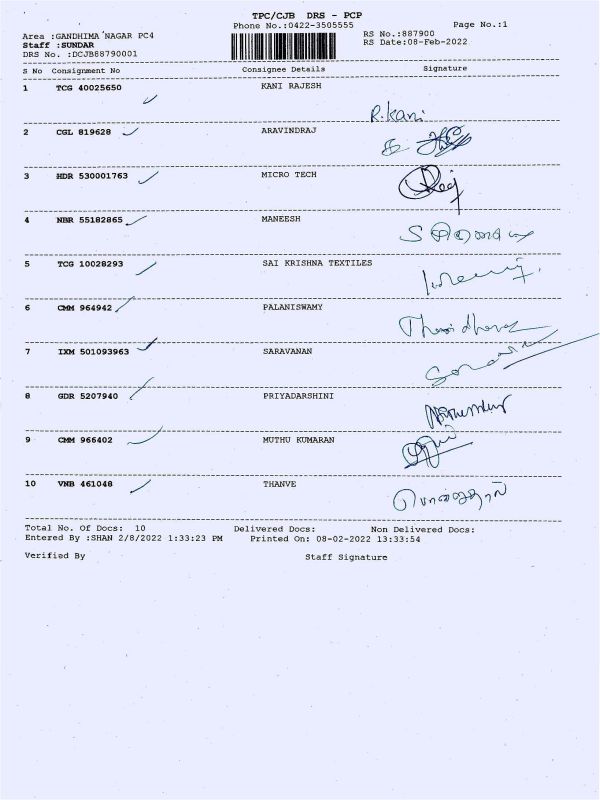 TPC/CJB DRS - PCP
Phone No.:0422-3505555
Page No.:1
Area :GANDHIMA'NAGAR PC4
RS No.:887900
Staff :SUNDAR
RS Date:08-Feb-2022
DRS No. :DCJB88790001
S No Consignment No Consignee Details Signature
1 TCG 40025650 KANI RAJESH
R.Kani
2 CGL 819628 ARAVINDRAJ
3 HDR 530001763 MICRO TECH
4 NBR 55182865 MANEESH
5 TCG 10028293 SAI KRISHNA TEXTILES
6 CMM 964942 PALANISWAMY
7 IXM 501093963 SARAVANAN
8 GDR 5207940 PRIYADARSHINI
9 CMM 966402 MUTHU KUMARAN
10 VNB 461048 THANVE
Total No. Of Docs: 10 Delivered Docs: Non Delivered Docs:
Entered By :SHAN 2/8/2022 1:33:23 PM Printed On: 08-02-2022 13:33:54
Verified By Staff Signature